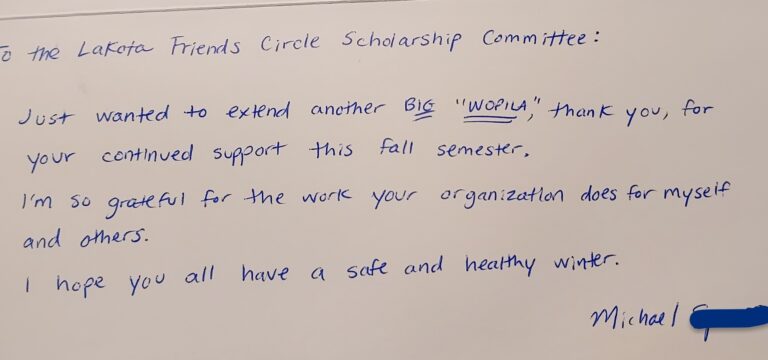 To the Lakota Friends Circle Scholarship Committee:
Just wanted to extend another BIG "WOPILA," thank you, for
your continued support this fall semester.
I'm so grateful for the work your organization does for myself
and others.
I hope you all have a safe and healthy winter.
Michael